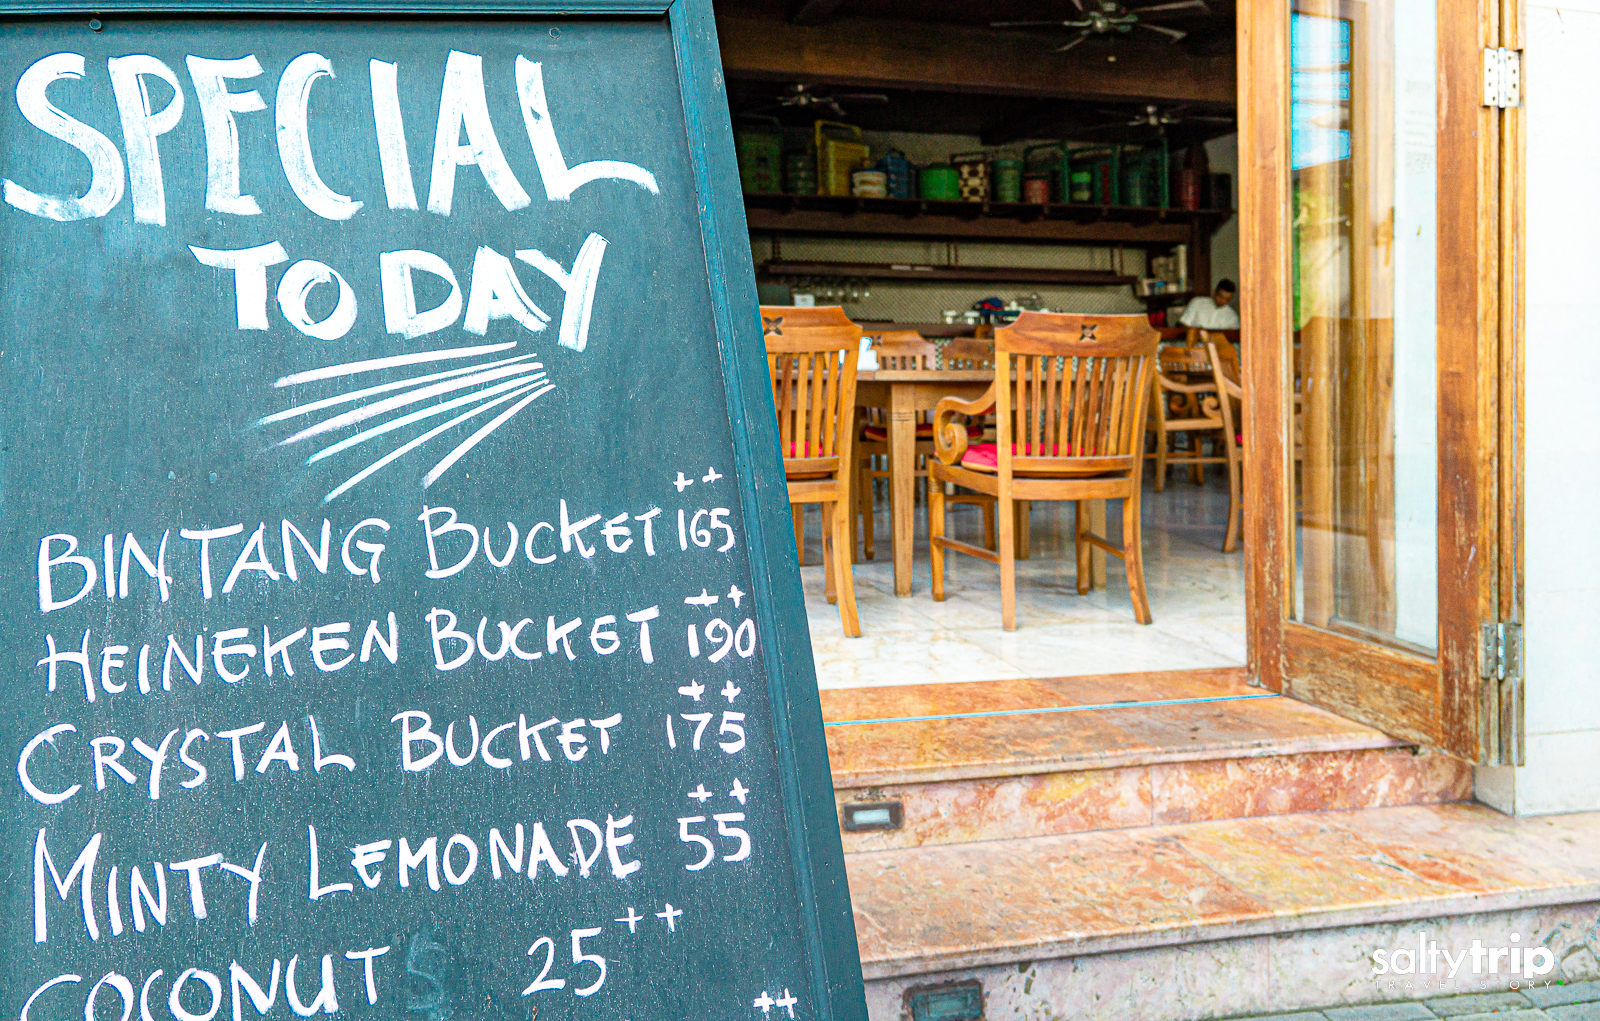 SPECIAL
TODAY
BINTANG BUCKET 165++
HEINEKEN BUCKET 190++
CRYSTAL BUCKET 175++
MINTY LEMONADE 55++
COCONUT 25++
++
saltytrip
TRAVEL STORY